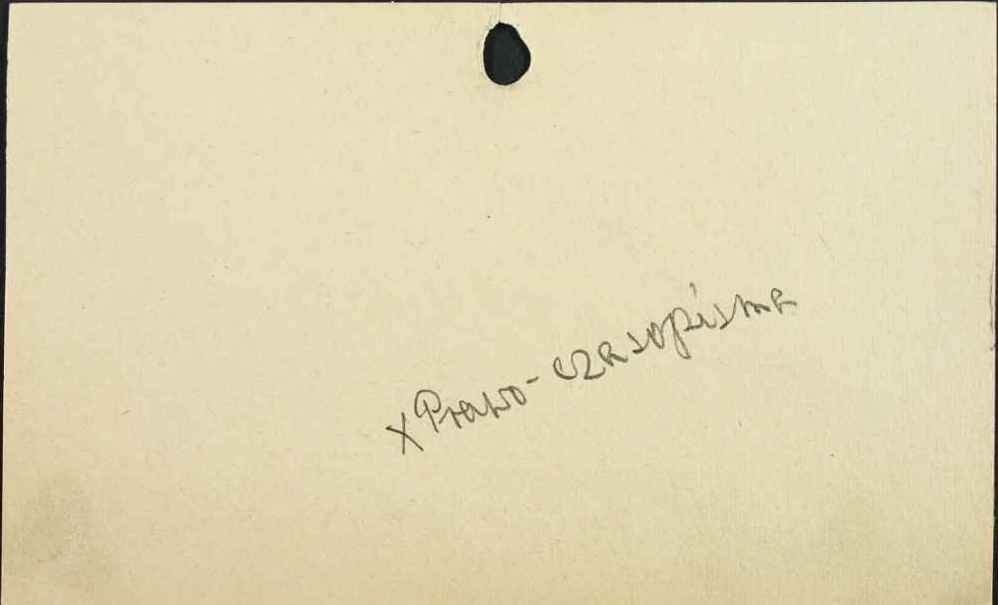 X Prawo - czasopisma